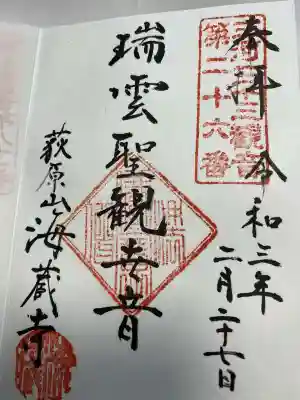 奉拝 令和三年
二月二十七日
第二十六番
瑞雲聖観世音
萩原山海蔵寺